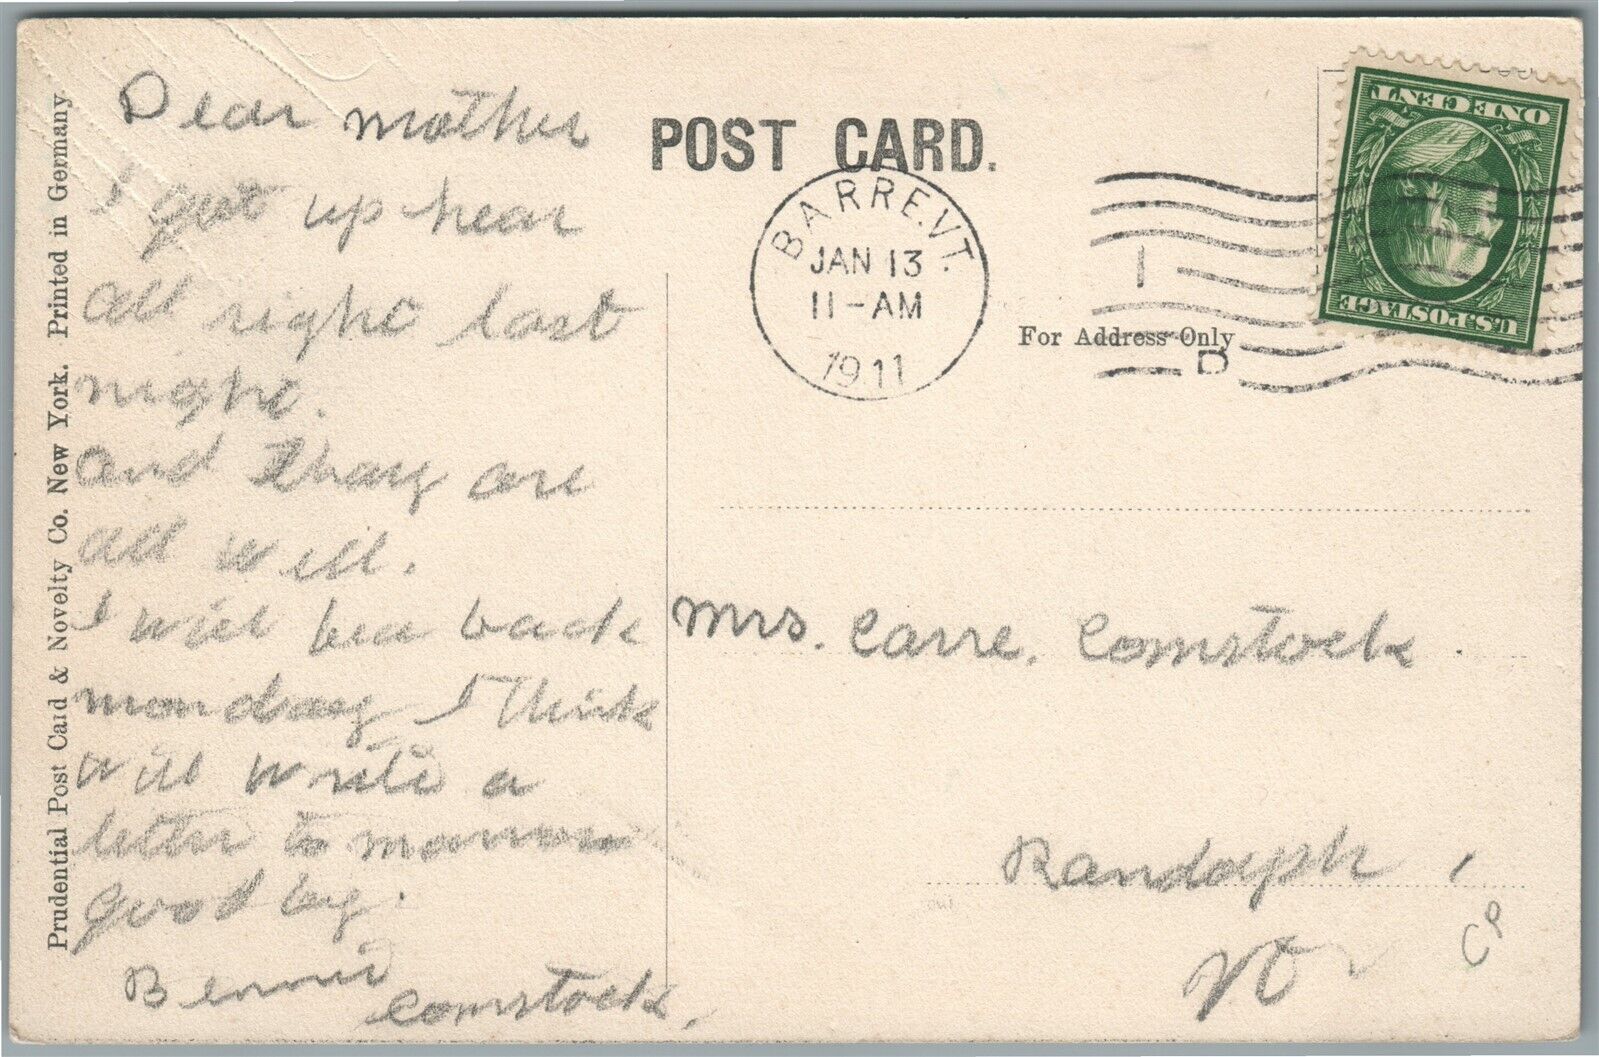 Prudential Post Card & Novelty Co. New York. Printed in Germany.
Dear mother
I got up hear
all right last
night.
and thay are
all well.
I will bea back
monday I think
will write a
letter to morrow
good by.
Bennie
Comstock.
POST CARD.
BARRE, VT.
JAN 13
11-AM
1911
1
D
For Address Only
ONE CENT
U.S. POSTAGE
Mrs. Carre. Comstock.
Randolph,
Vt